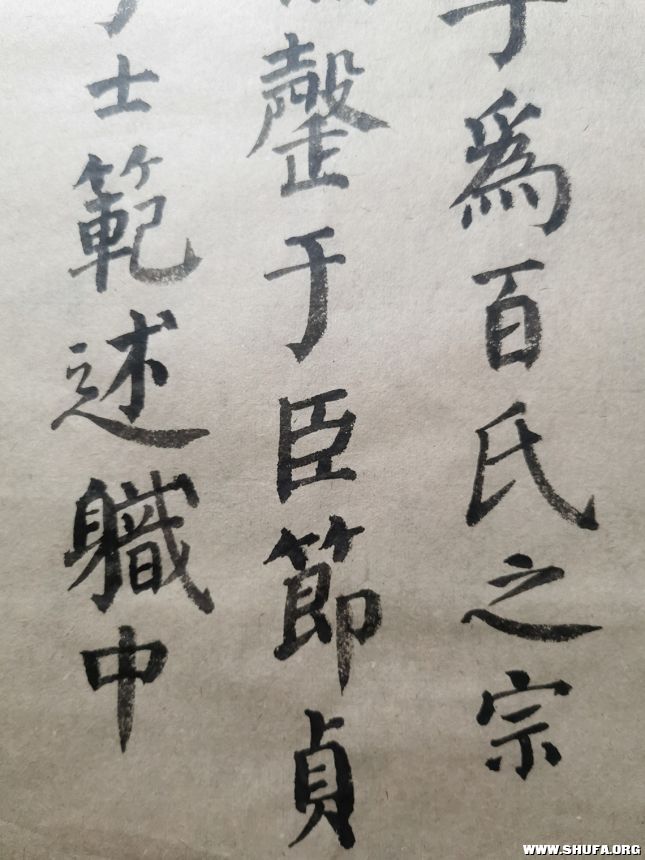 為百氏之宗
罄于臣節貞
士範述軄中
WWW.SHUFA.ORG